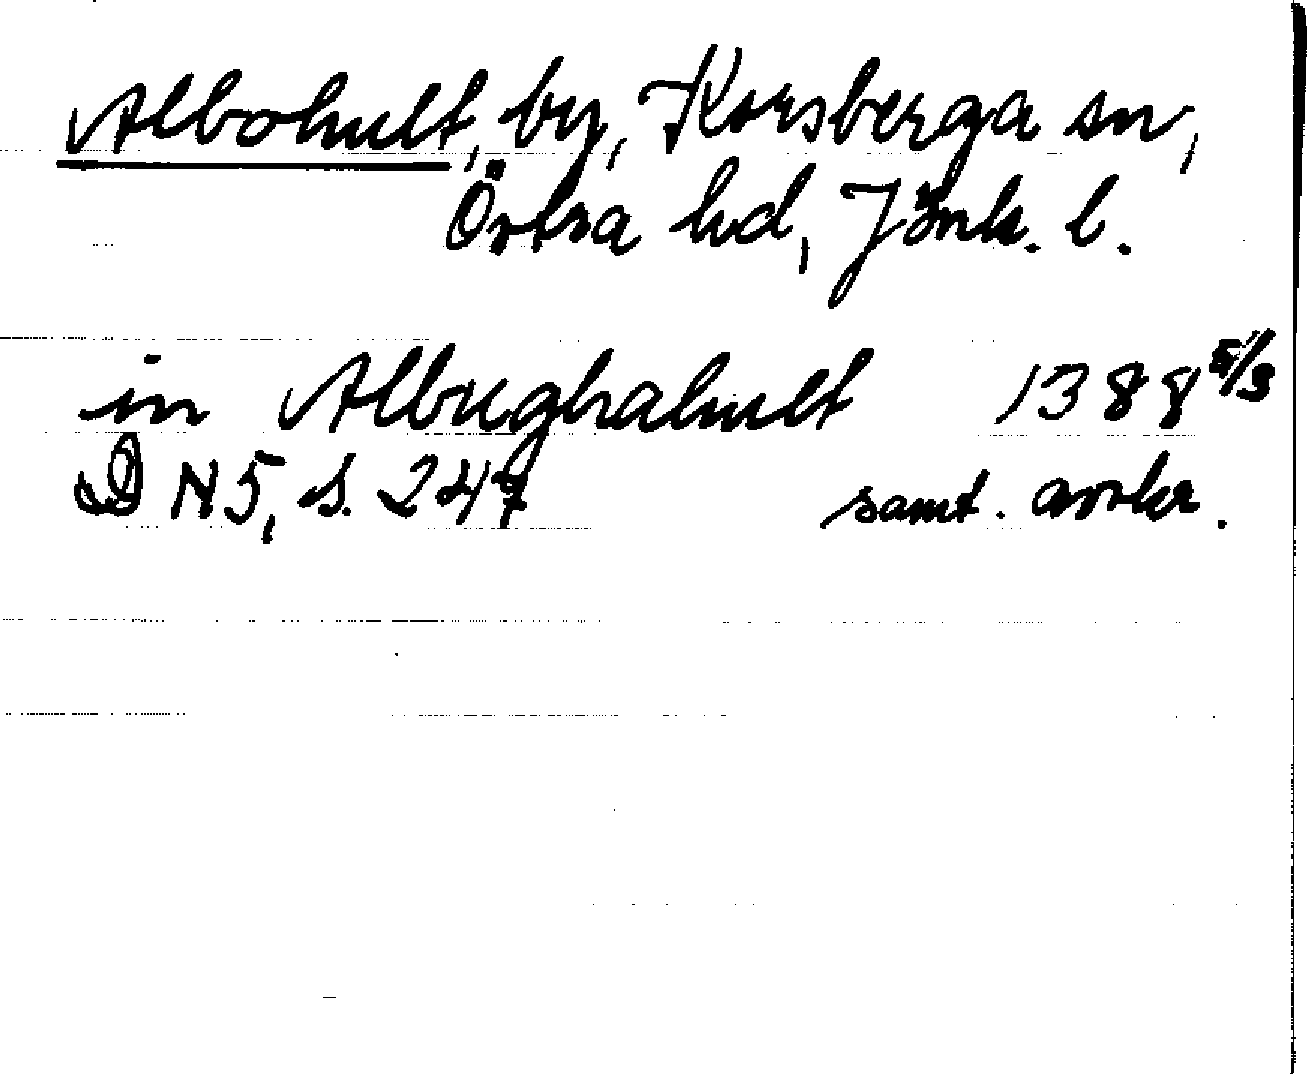 Albohult, by, Korsberga sn,
Östra hd, Jönk. l.
in Albughahult 1388 5/3
DN5, s. 247 samt. avskr.